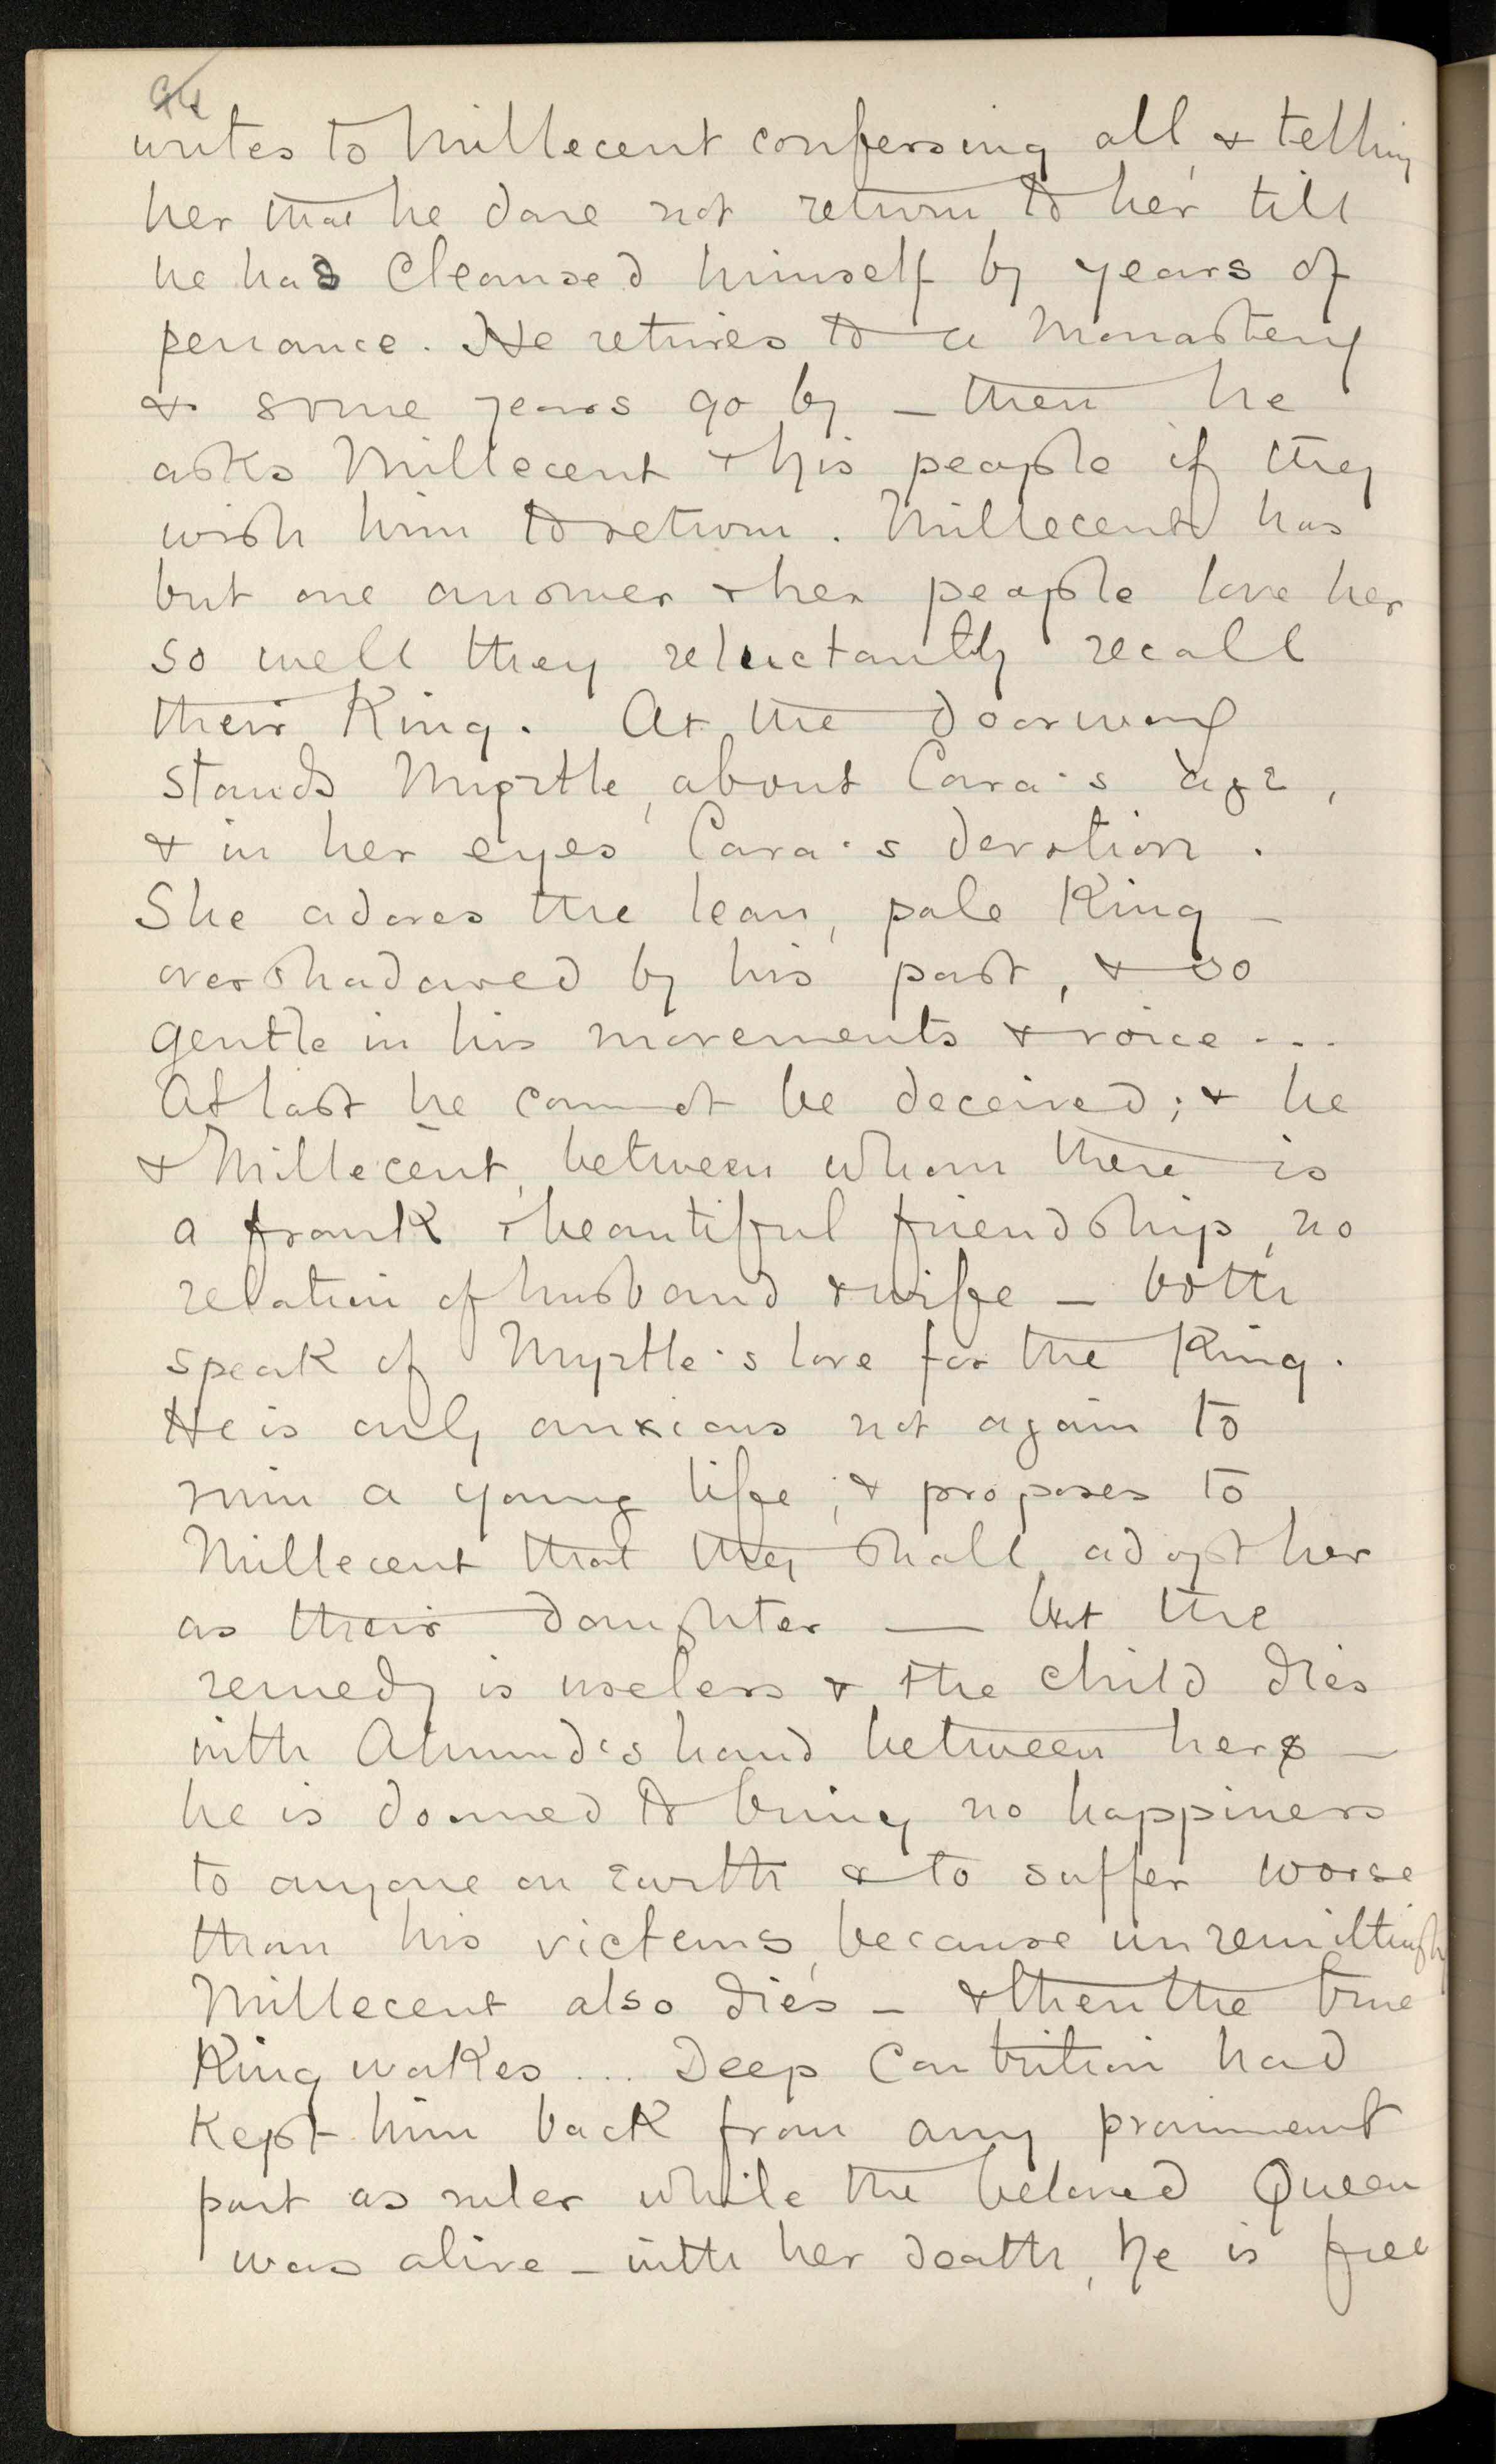 writes to Millecent confessing all, & telling
her that he dare not return to her till
he had cleansed himself by years of
penance. He retires to a Monastery
& some years go by – then he
asks Millecent & his people if they
wish him to return. Millecent has
but one answer & her people love her
so well they reluctantly recall
their King. At the doorway
stands Myrtle, about Cara's age,
& in her eyes Cara's devotion.
She adores the lean, pale King –
overshadowed by his past, & so
gentle in his movements & voice ...
At last he cannot be deceived; & he
& Millecent, between whom there is
a frank & beautiful friendship, no
relation of husband & wife – both
speak of Myrtle's love for the King.
He is only anxious not again to
ruin a young life, & proposes to
Millecent that they shall adopt her
as their daughter — but the
remedy is useless & the child dies
with Almund's hand between hers –
he is doomed to bring no happiness
to anyone on Earth & to suffer worse
than his victems, because unremittingly
Millecent also dies – & then the true
King wakes ... Deep Contrition had
kept him back from any prominent
part as ruler while the beloved Queen
was alive – with her death, he is free